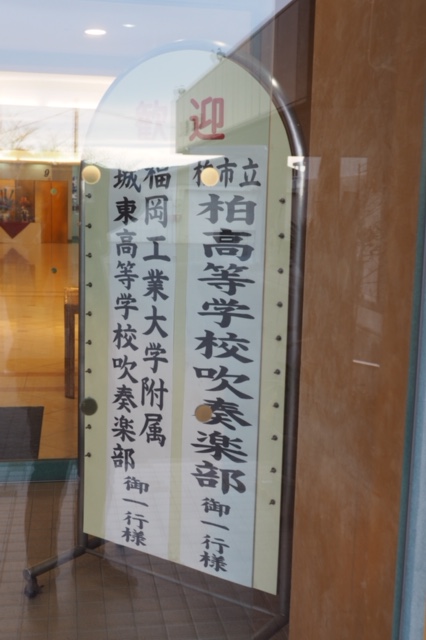 歓迎
柏市立
柏高等学校吹奏楽部 御一行様
福岡工業大学附属
城東高等学校吹奏楽部 御一行様